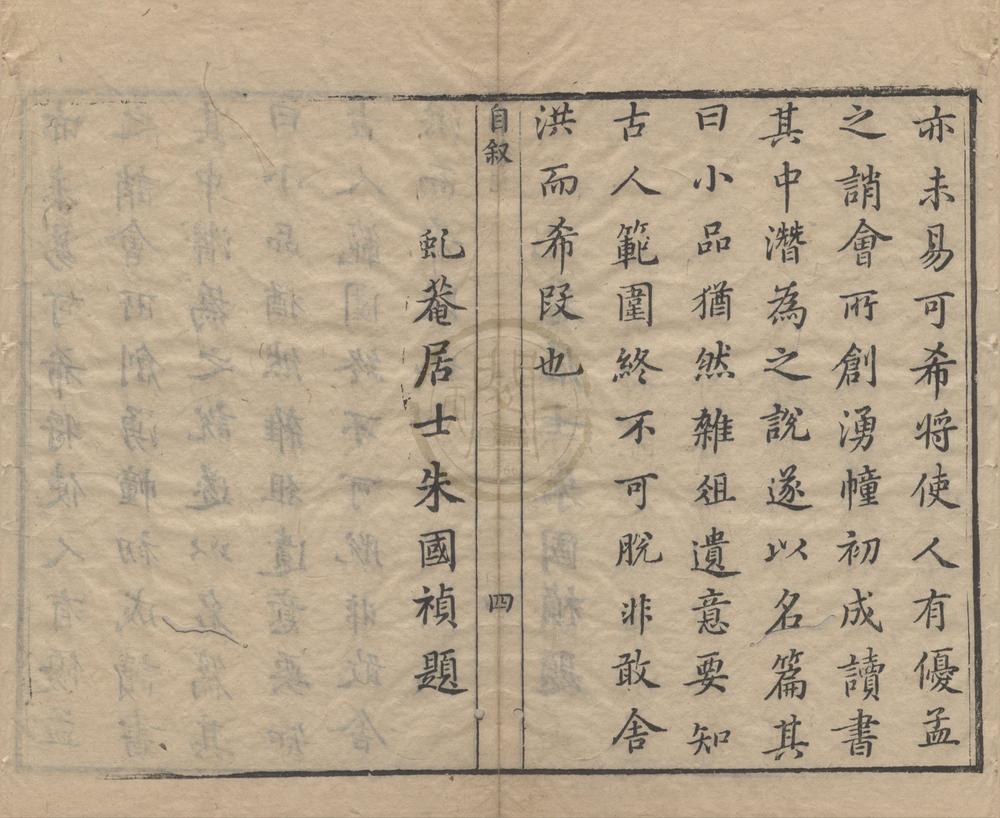 亦未易可希将使人有優孟
之誚會所創湧幢初成讀書
其中潛為之說遂以名篇其
曰小品猶然雜俎遺意要知
古人範圍終不可脫非敢舍
洪而希段也
自叙
四
虬菴居士朱國禎題